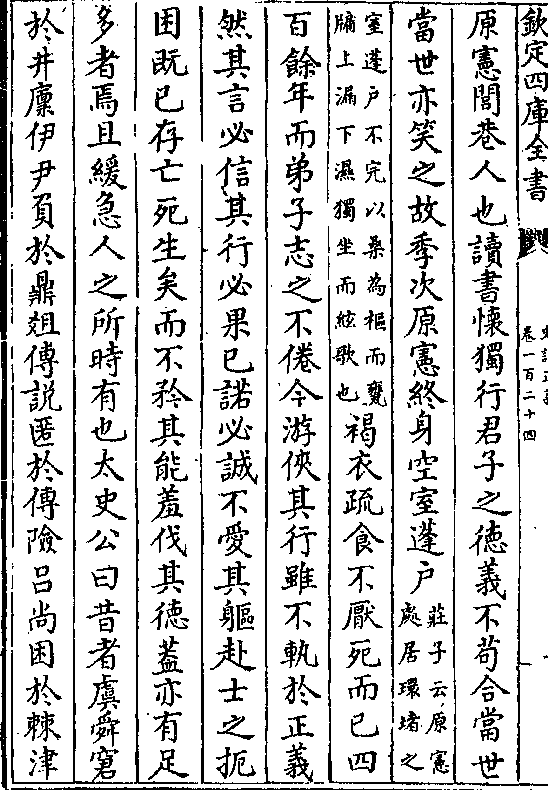 欽定四庫全書
卷一百二十四
原憲閭巷人也讀書懷獨行君子之德義不茍合當世
當世亦笑之故季次原憲終身空室蓬戶莊子云原憲
處居環堵之
室蓬戶不完以桑為樞而甕
牖上漏下濕獨坐而絃歌也褐衣疏食不厭死而已四
百餘年而弟子志之不倦今游俠其行雖不軌於正義
然其言必信其行必果已諾必誠不愛其軀赴士之扼
困既已存亡死生矣而不矜其能羞伐其德葢亦有足
多者焉且緩急人之所時有也太史公曰昔者虞舜窘
於井廩伊尹負於鼎俎傅説匿於傅險吕尚困於棘津